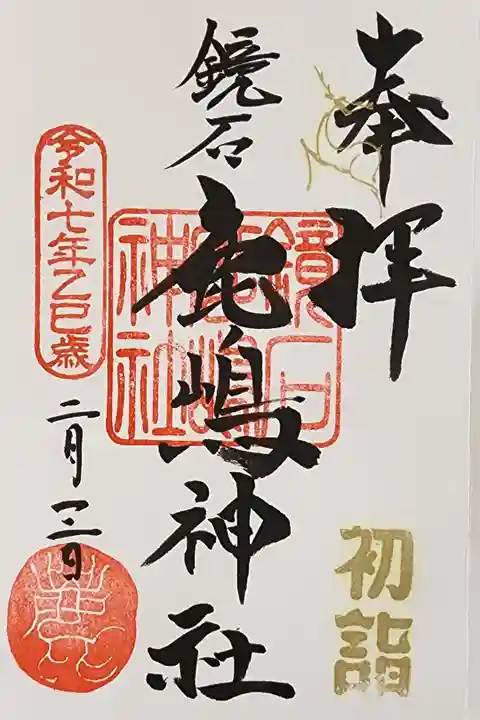 奉拝
初詣
鏡石
鹿嶋神社
鏡石
鹿嶋
神社
令和七年乙巳歳
二月三日